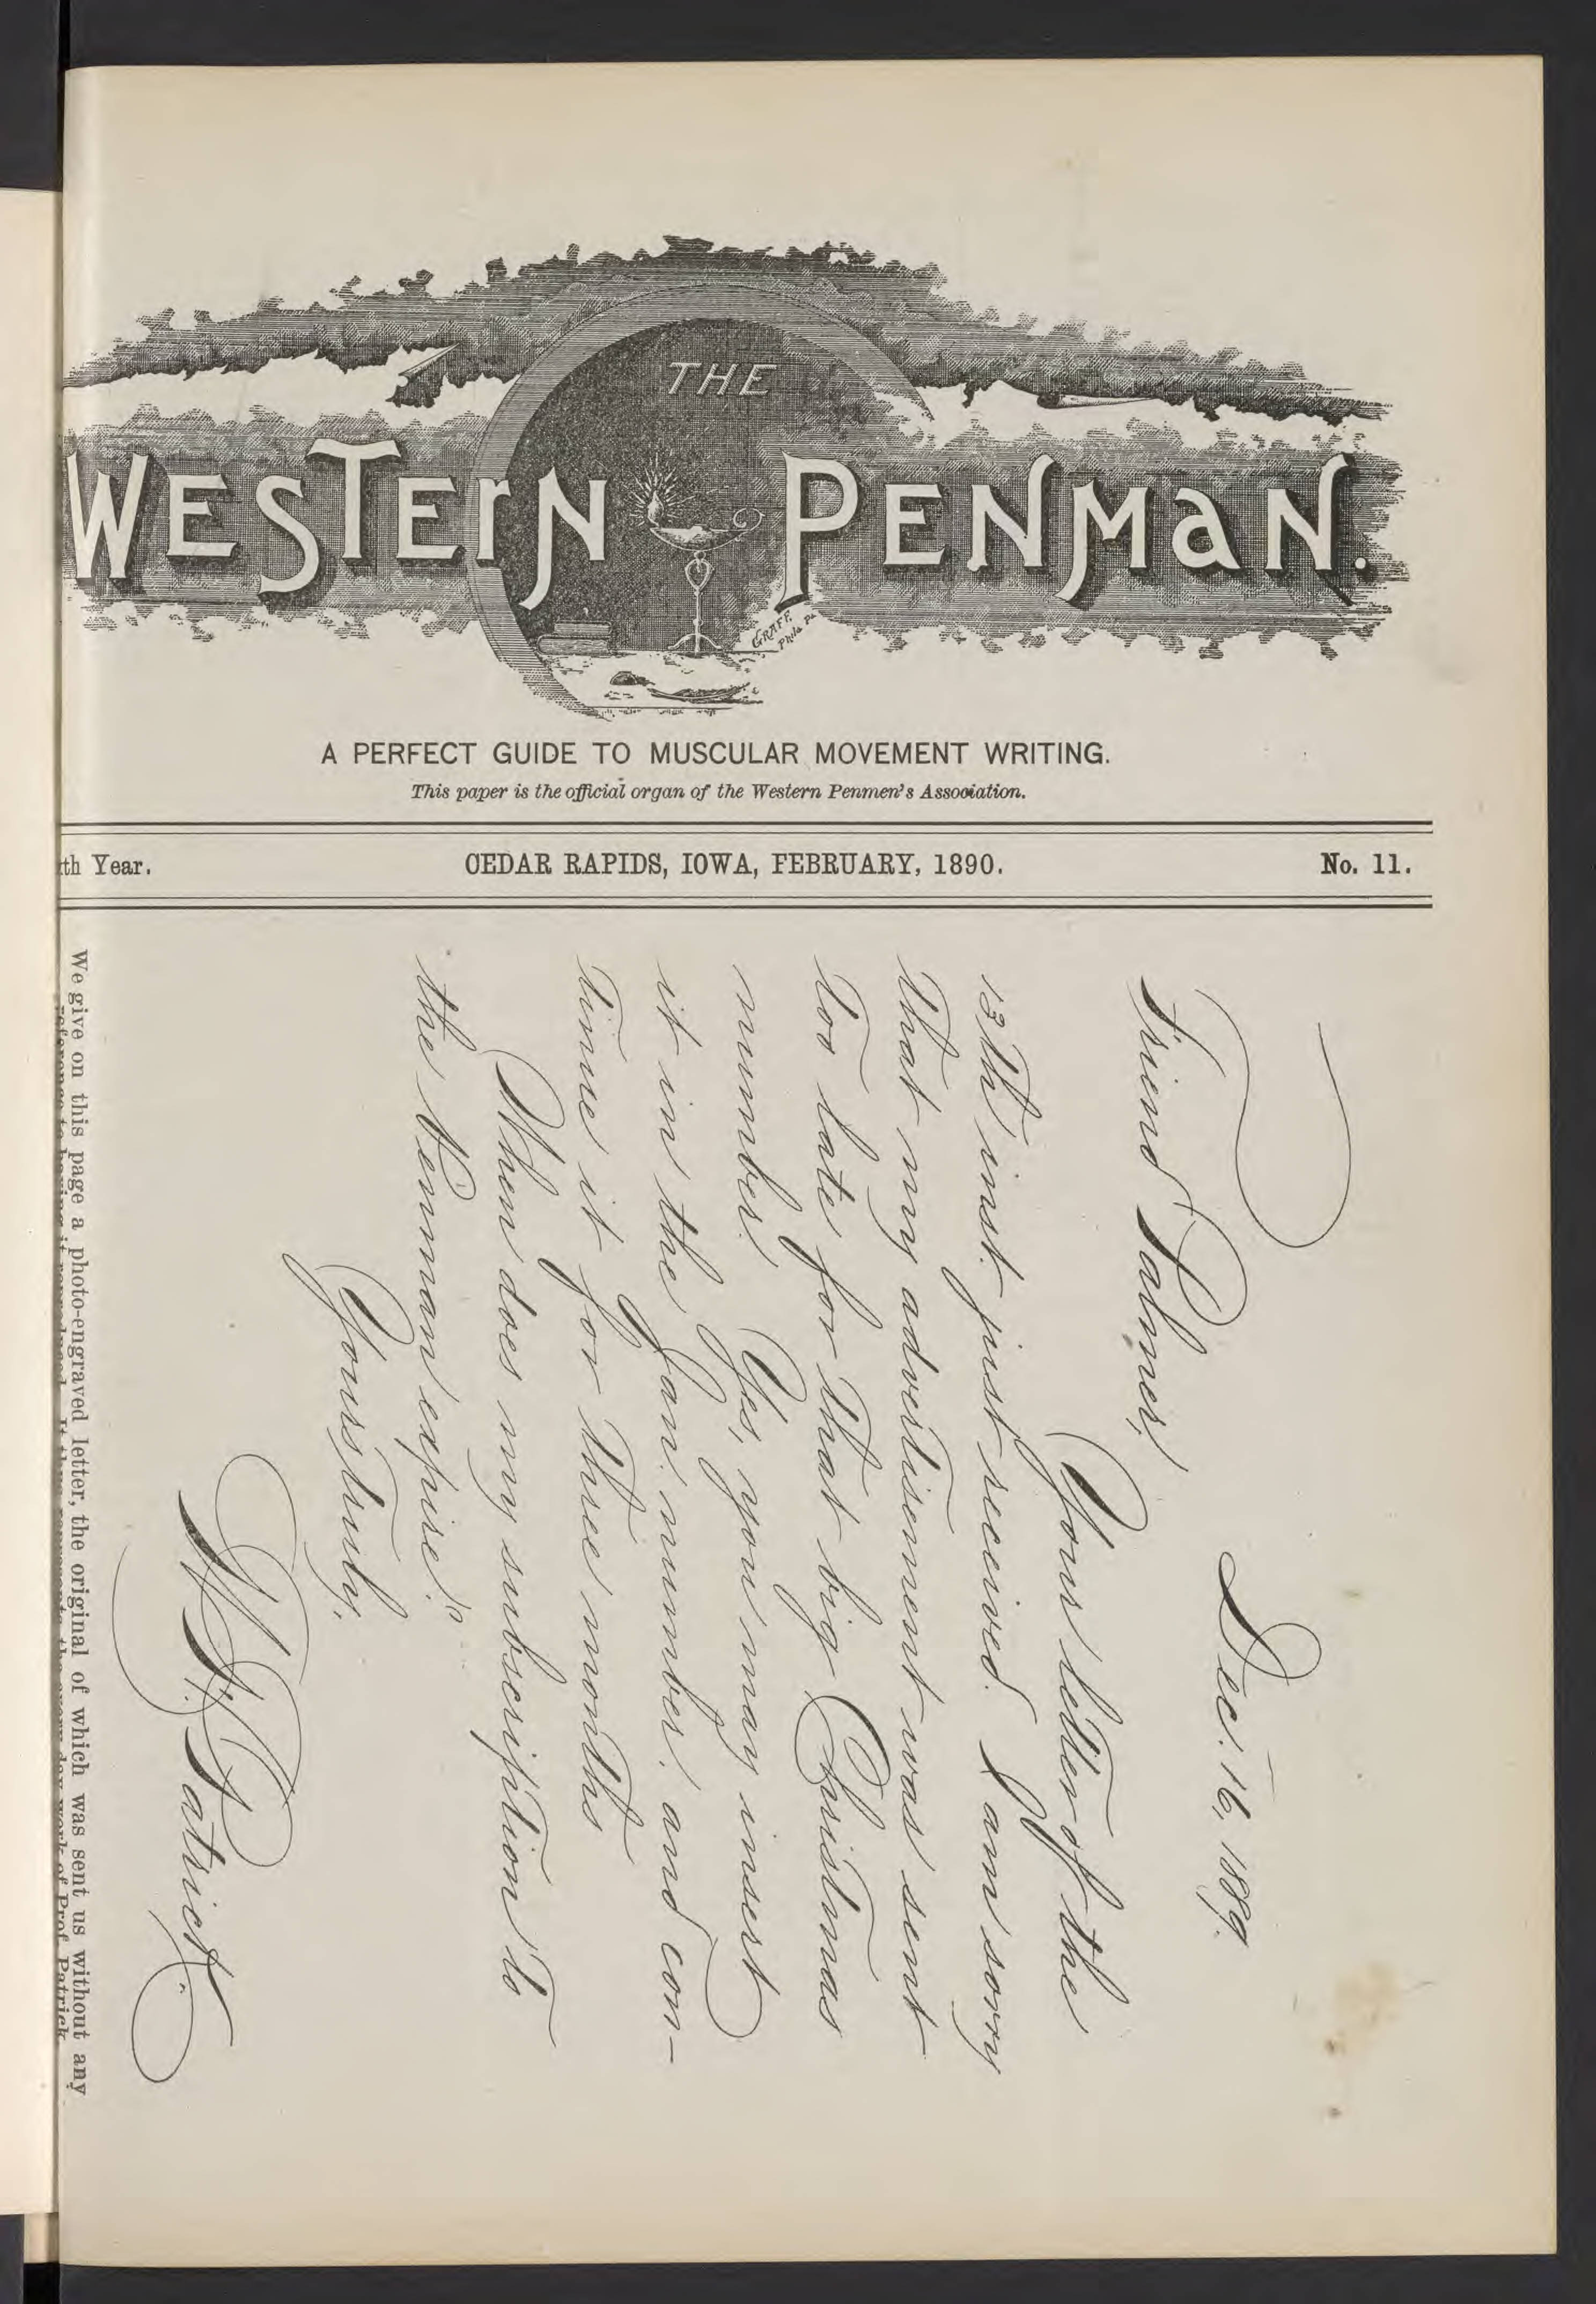 THE
WESTERN PENMAN.
GRAFF.
Phila Pa
A PERFECT GUIDE TO MUSCULAR MOVEMENT WRITING.
This paper is the official organ of the Western Penmen's Association.
th Year. CEDAR RAPIDS, IOWA, FEBRUARY, 1890. No. 11.
Dec. 16, 1889.
Friend Palmer,
Your letter of the
13th inst. just received. I am sorry
that my advertisement was sent
too late for that big Christmas
number. Yes, you may insert
it in the Jan. number, and con-
tinue it for three months
When does my subscription to
the Penman expire?
Yours truly,
W. J. Patrick.
We give on this page a photo-engraved letter, the original of which was sent us without any
reference to having it reproduced. It thus represents the every day work of Prof. Patrick